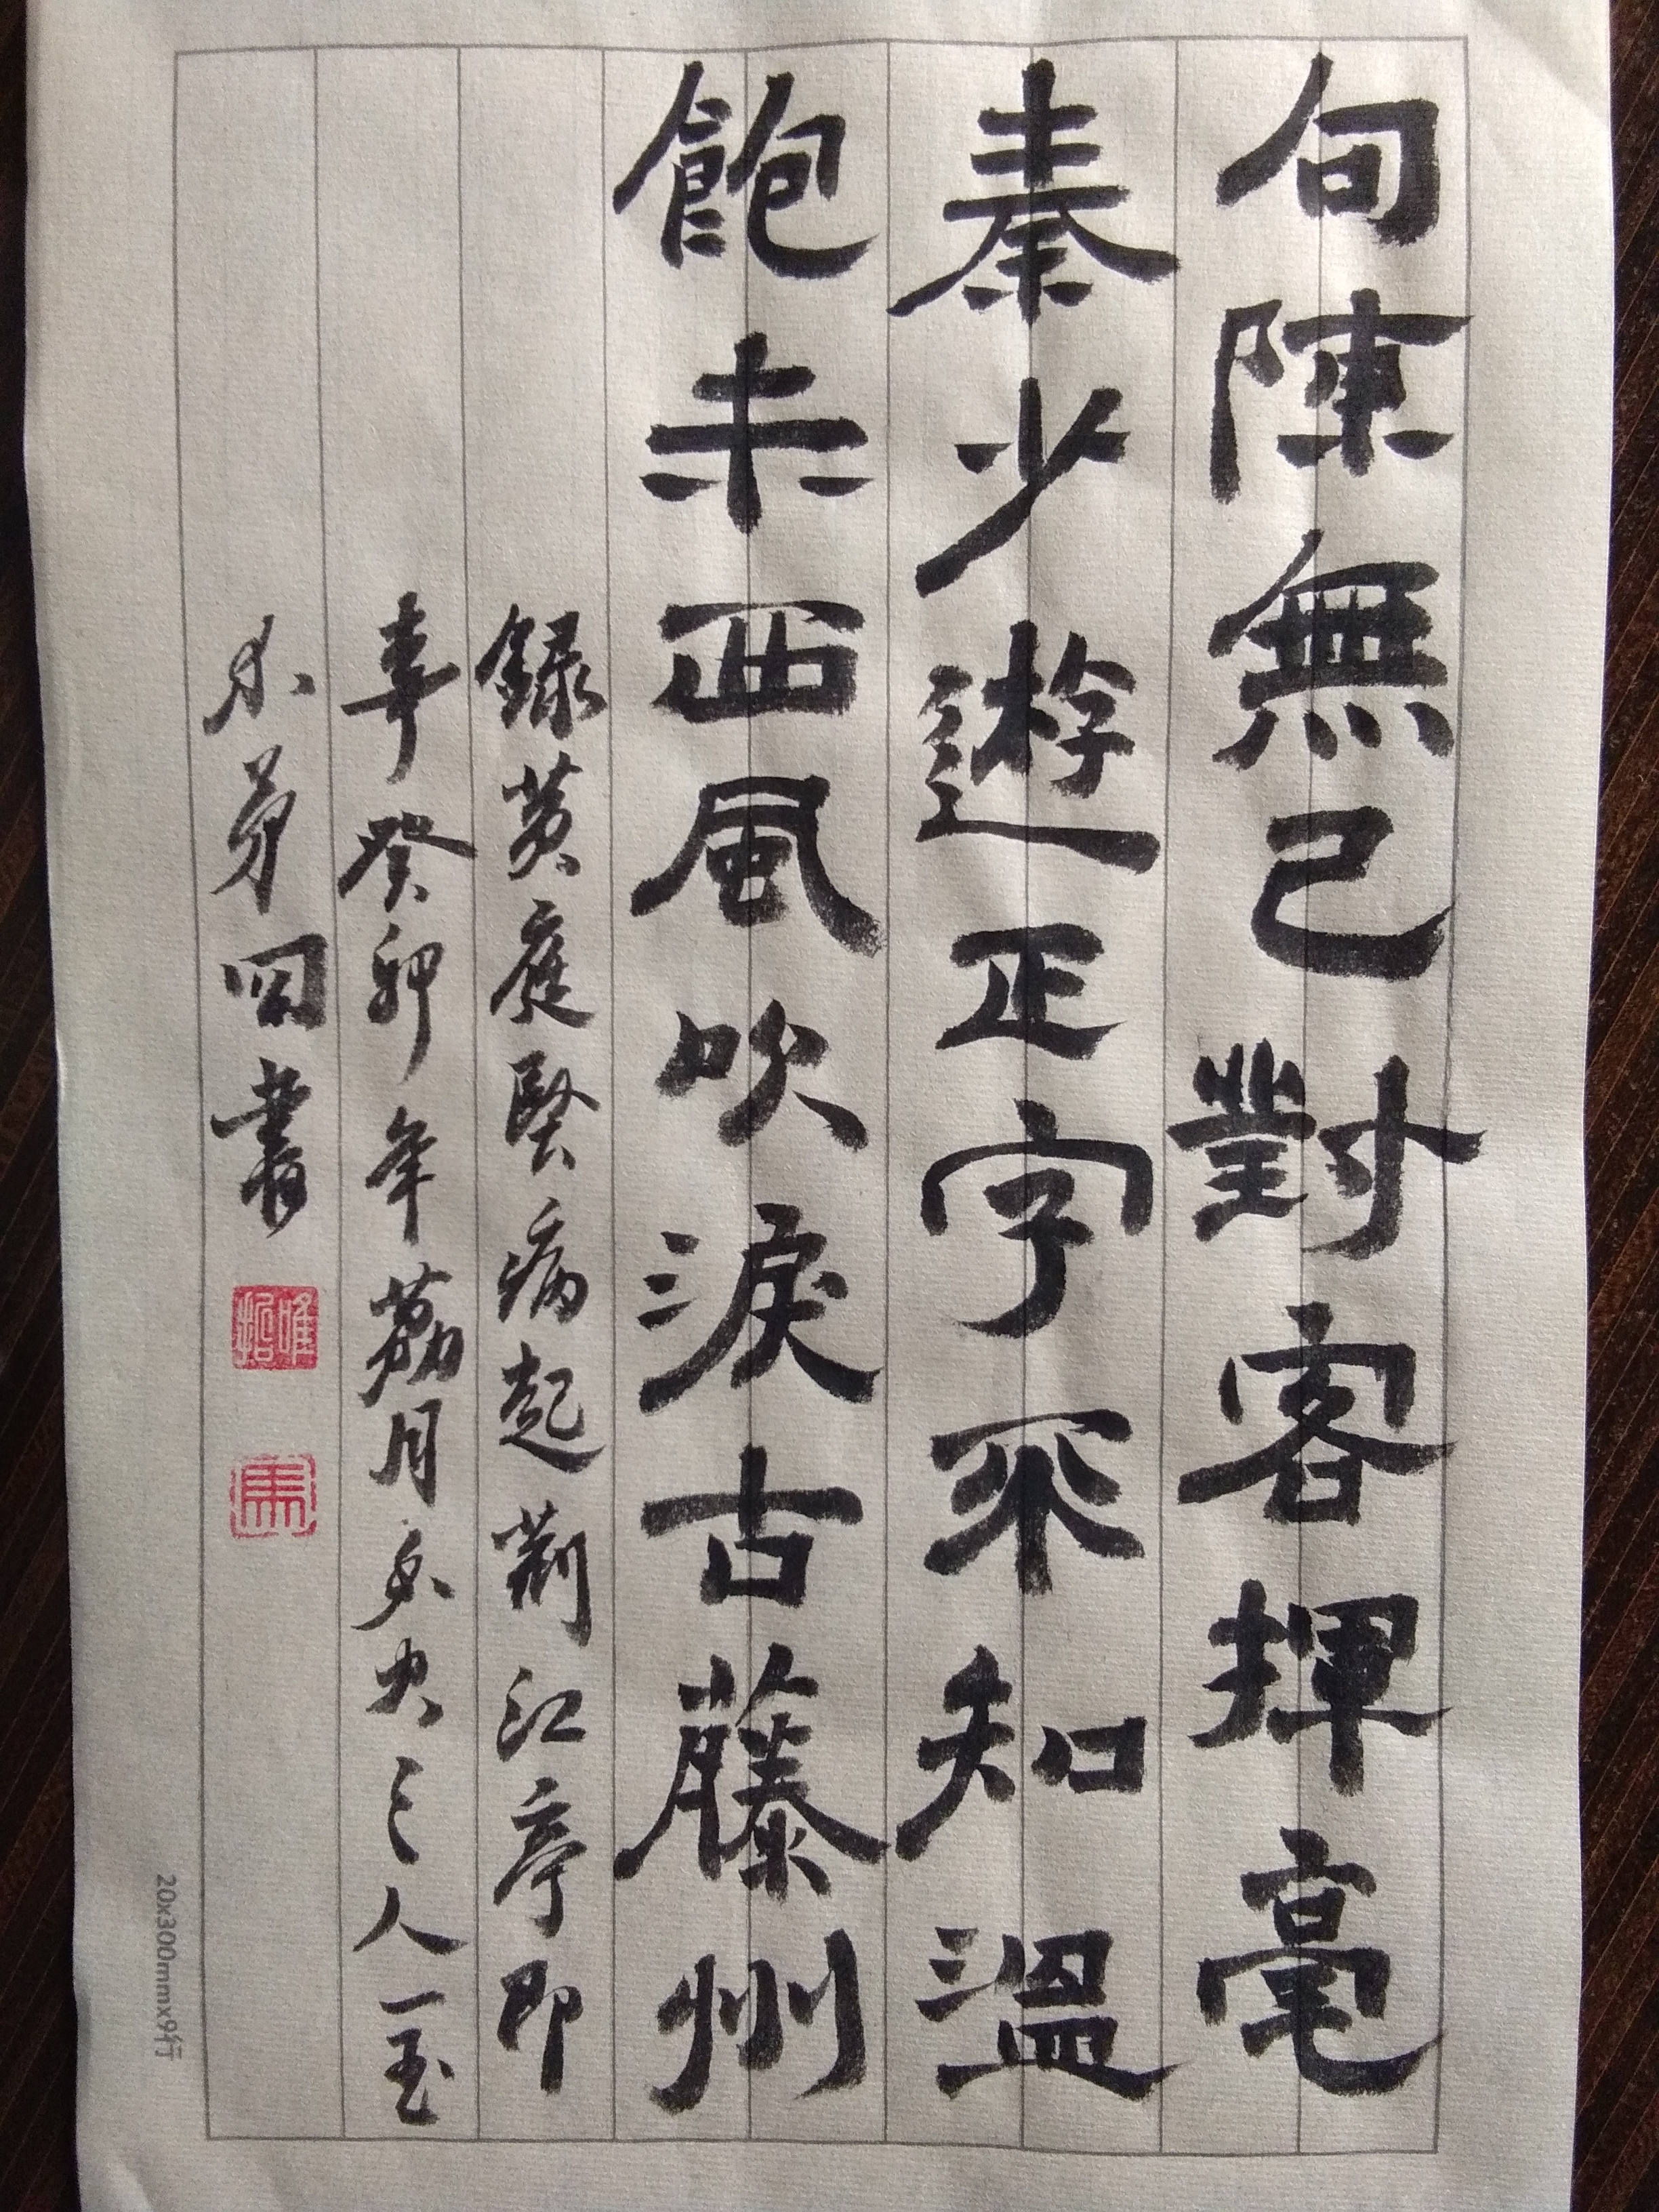 句陳無己對客揮毫
秦少遊正字不知溫
飽未西風吹淚古藤州
錄黃庭堅病起荊江亭即
事癸卯年荔月 人一
書
唯哲
馬
20x300mmx9行